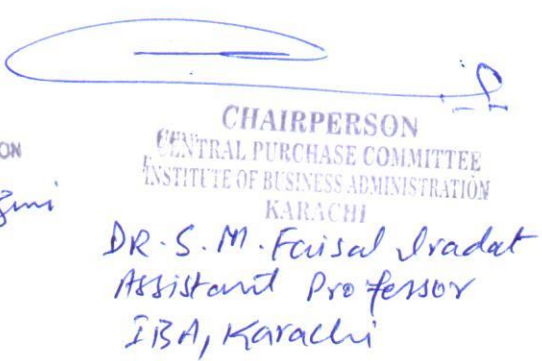 CHAIRPERSON
CENTRAL PURCHASE COMMITTEE
INSTITUTE OF BUSINESS ADMINISTRATION
KARACHI
DR. S. M. Faisal Iradat
Assistant Professor
IBA, Karachi
ON